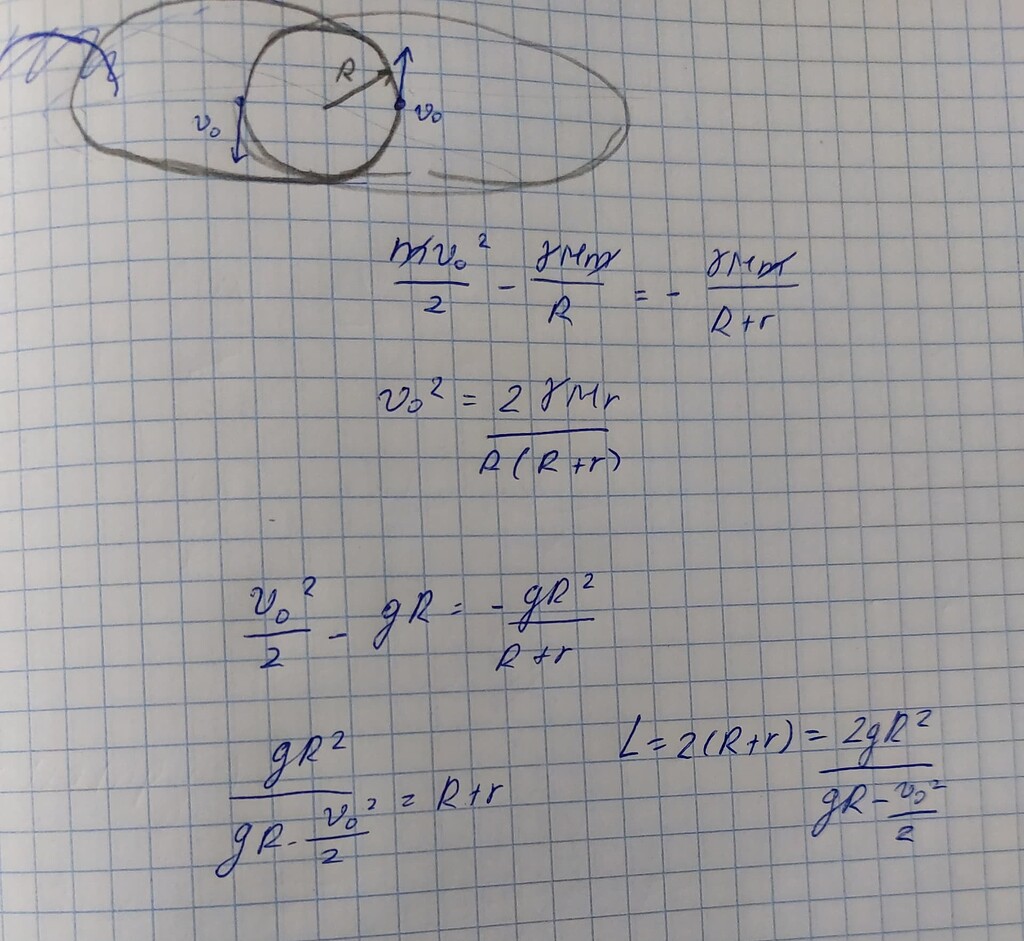 R
v₀ v₀
mv₀²/2 - γMm/R = - γMm/R+r
v₀² = 2γMr/R(R+r)
v₀²/2 - gR = - gR²/R+r
gR²/gR - v₀²/2 = R+r L = 2(R+r) = 2gR²/gR - v₀²/2